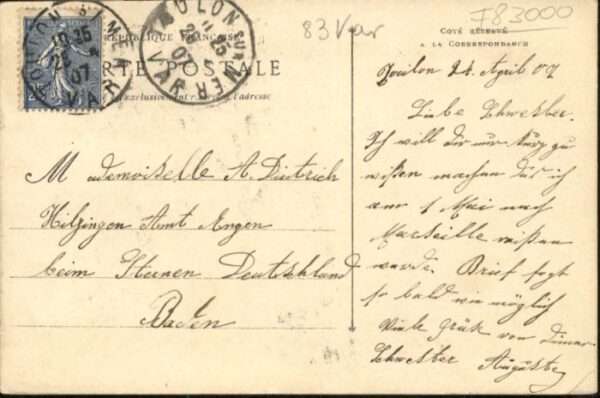 83 Var
F83000
TOULON SUR MER
VAR
RÉPUBLIQUE FRANÇAISE
CARTE POSTALE
exclusivement l'adresse
COTÉ RÉSERVÉ
A LA CORRESPONDANCE
TOULON S MER
VAR
07
Mademoiselle A. Dietrich
Hilzingen Amt Engen
beim Sternen Deutschland
Baden
Toulon 24. April 07
Liebe Schwester.
Ich will dir nur kurz zu
wißen machen daß ich
am 1 Mai nach
Marseille
werde. Brief fogt
so bald wie möglich
Viele grüße von deiner
Schwester Auguste